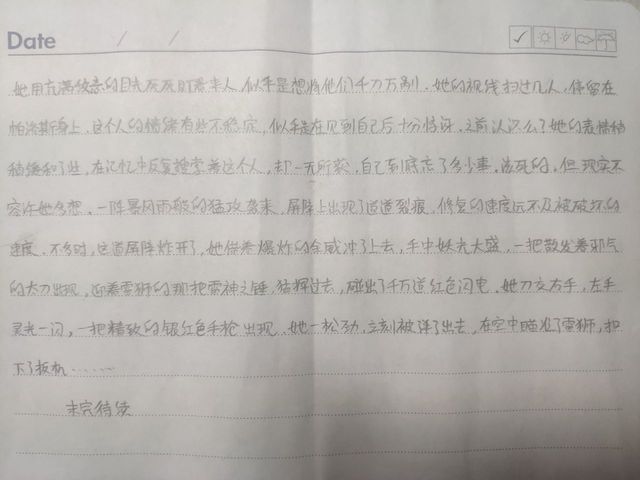 Date / /
她用充满敌意的目光死死盯着来人,似乎是想将他们千刀万剐。她的视线扫过几人,停留在
帕洛斯身上,这个人的情绪有些不稳定,似乎是在见到自己后十分惊讶,之前认识么?她的表情稍
稍缓和了些,在记忆中反复搜索着这个人,却一无所获,自己到底忘了多少事,该死的,但现实不
容许她多想,一阵暴风雨般的猛攻袭来,屏障上出现了道道裂痕,修复的速度远不及被破坏的
速度,不多时,这道屏障炸开了,她借着爆炸的余威冲了上去,手中妖光大盛,一把散发着邪气
的太刀出现,迎着雷狮的那把雷神之锤,猛挥过去,碰出了千万道红色闪电,她刀交右手,左手
灵光一闪,一把精致的银红色手枪出现,她一松劲,立刻被弹了出去,在空中瞄准了雷狮,扣
下了扳机……
未完待续